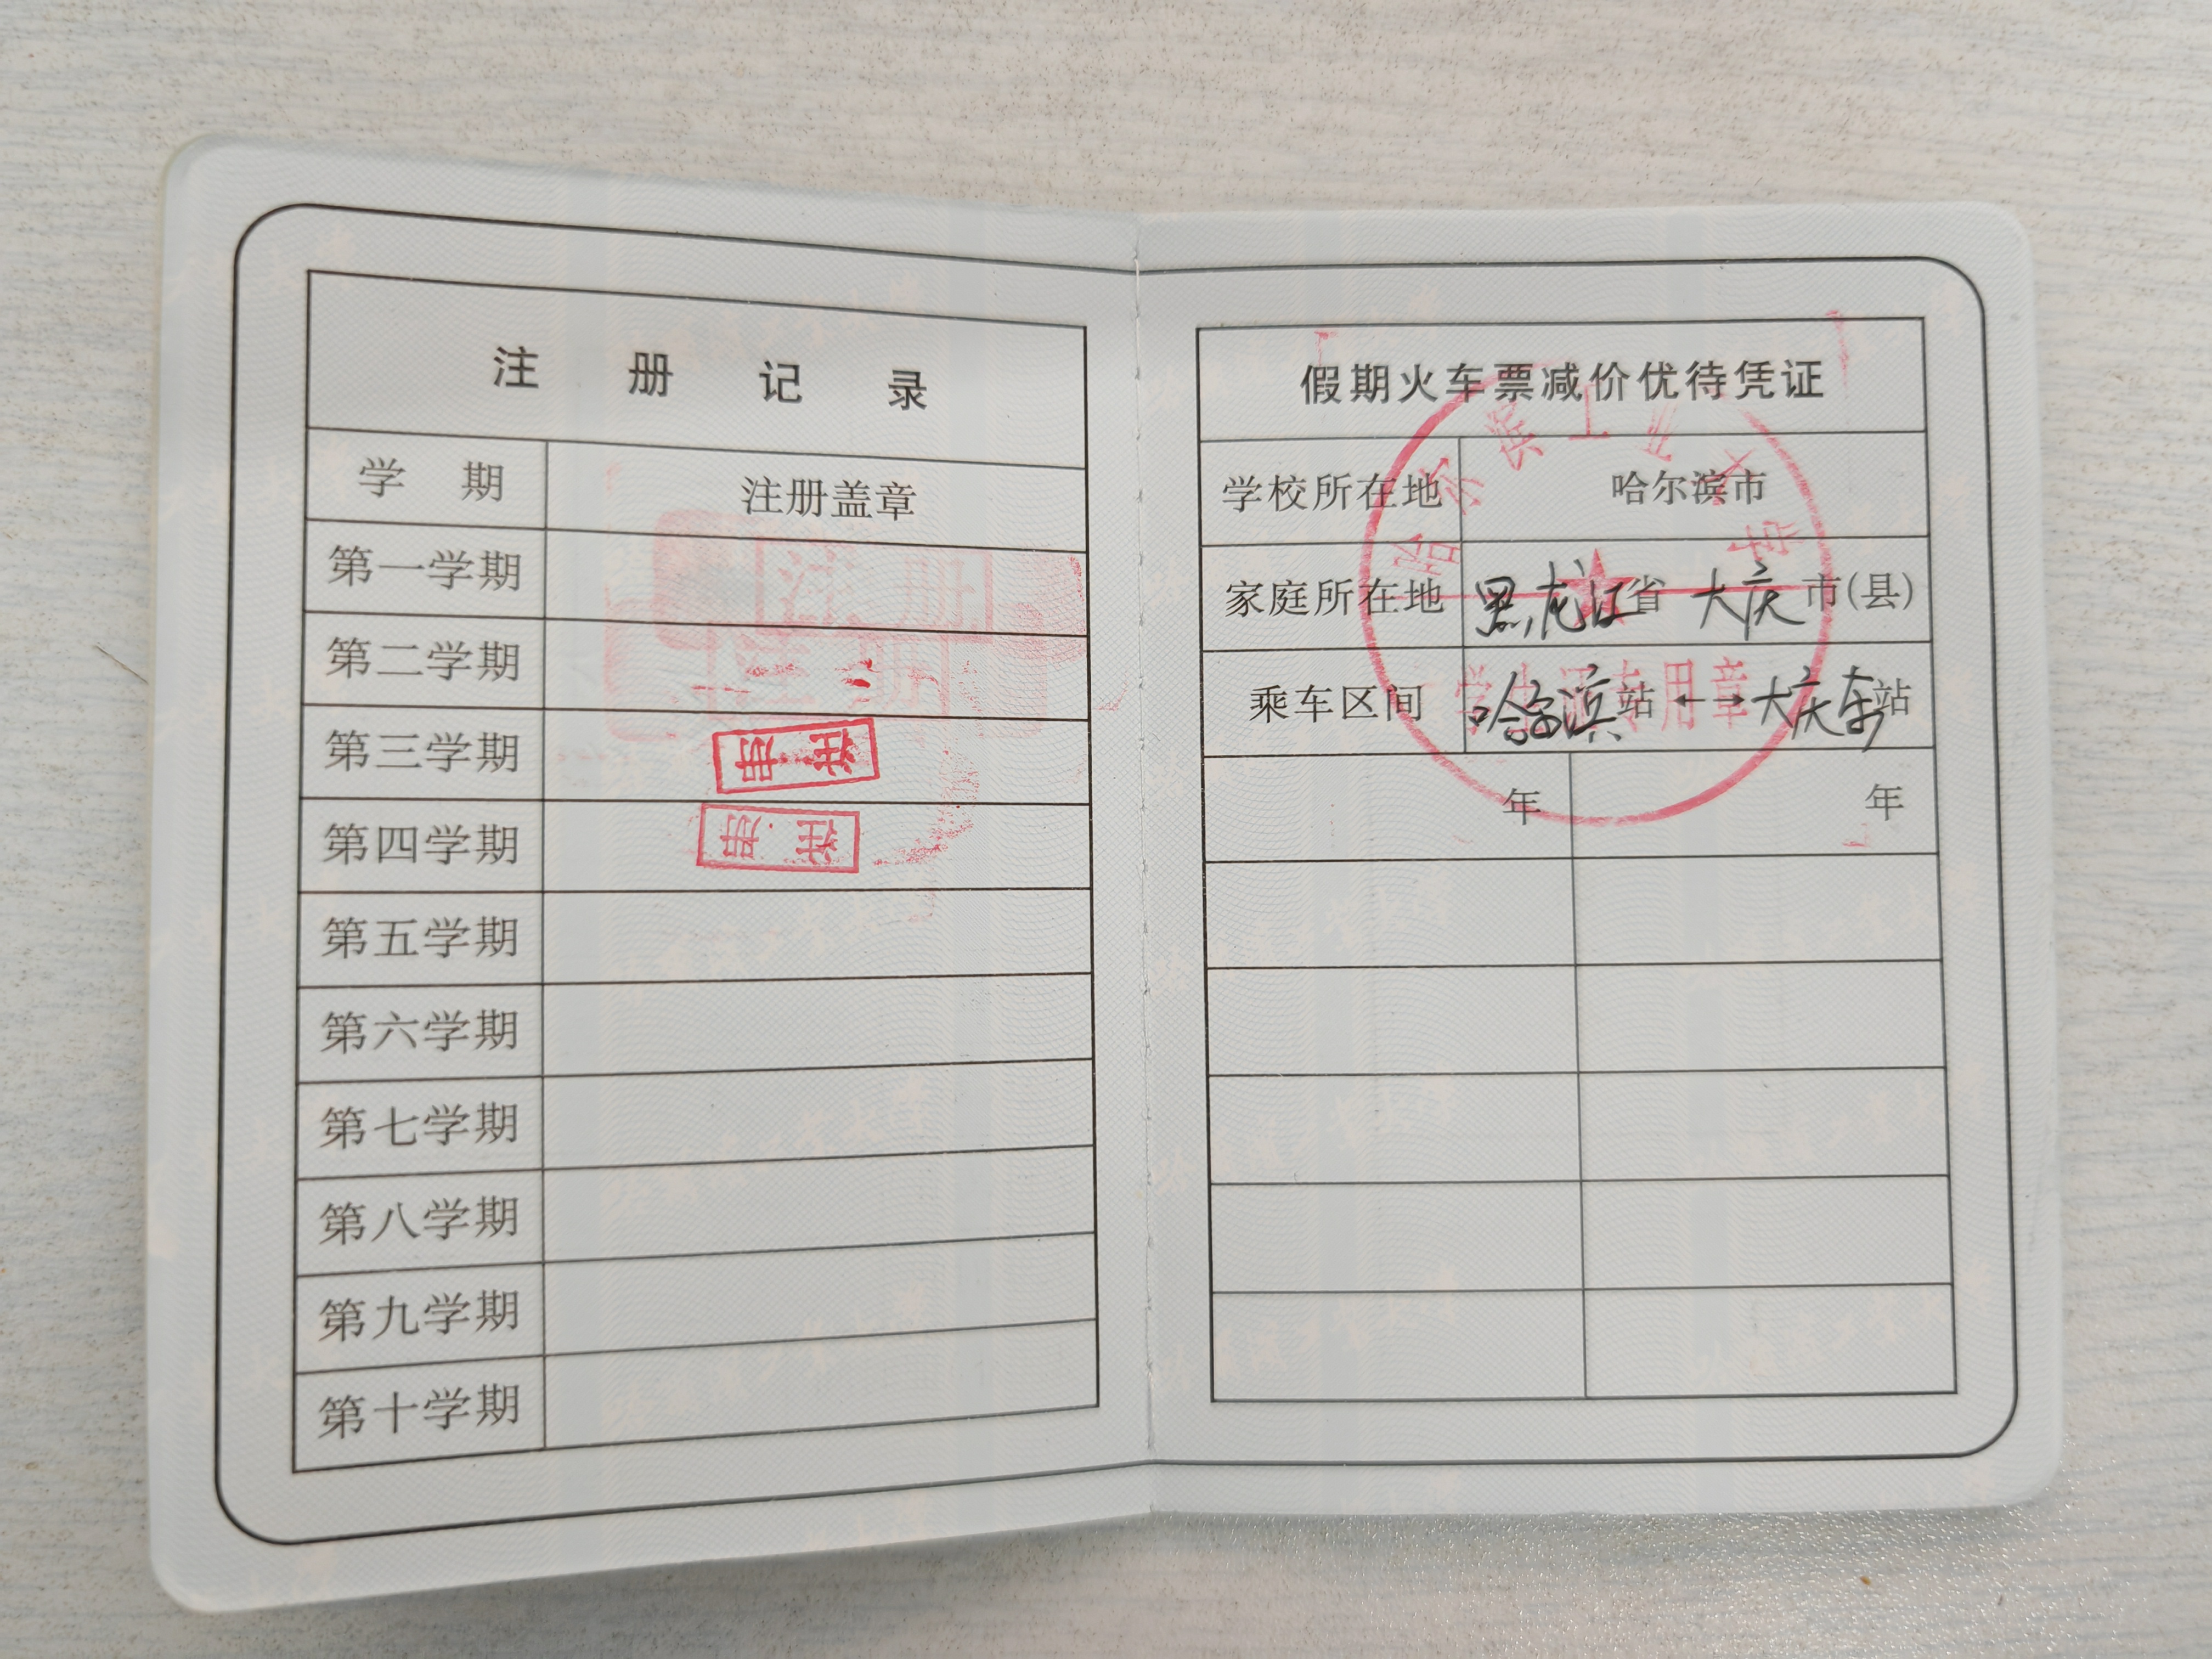 注册记录
学期 注册盖章
第一学期 注册
第二学期 注册
第三学期 注册
第四学期 注册
第五学期
第六学期
第七学期
第八学期
第九学期
第十学期
假期火车票减价优待凭证
学校所在地 哈尔滨市
家庭所在地 黑龙江省 大庆市(县)
乘车区间 哈尔滨站 ←→ 大庆东站
年 年
哈尔滨工业大学
学生证专用章